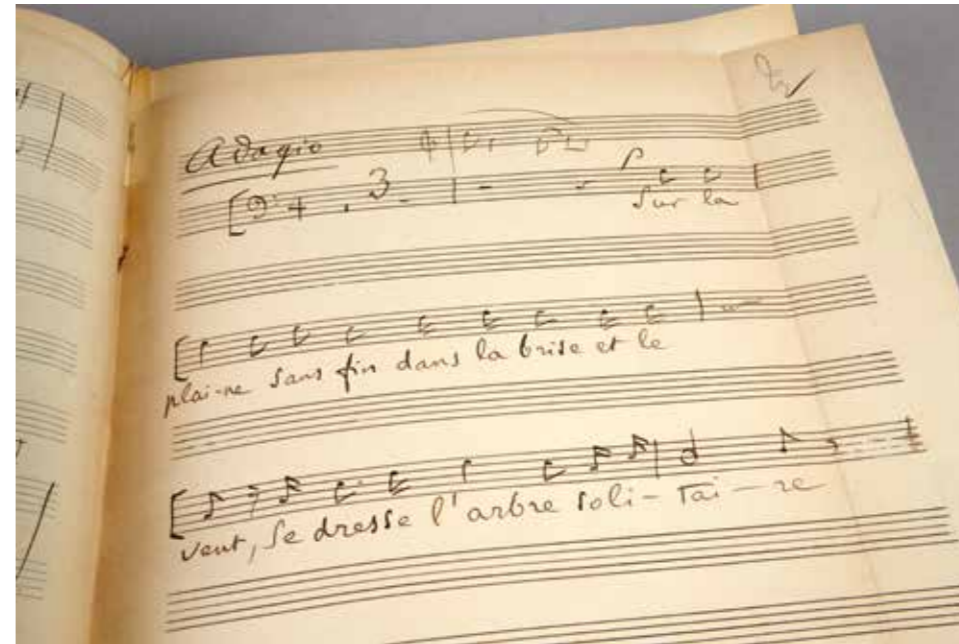 Adagio
3
Sur la
plai-ne sans fin dans la brise et le
vent, se dresse l'arbre soli-tai-re